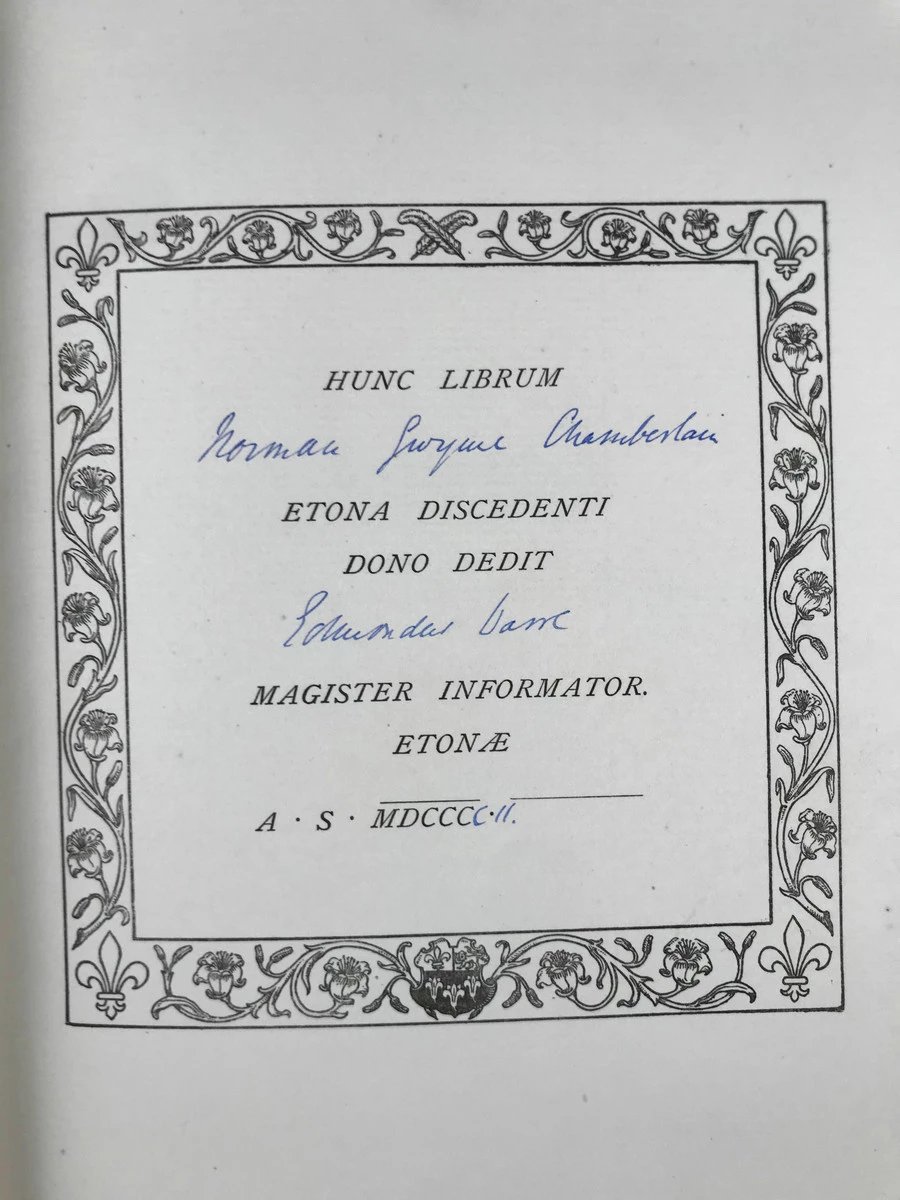 HUNC LIBRUM
Norman Gwynne Chamberlain
ETONA DISCEDENTI
DONO DEDIT
Edmondus Warre
MAGISTER INFORMATOR.
ETONÆ
A · S · MDCCCC·II.